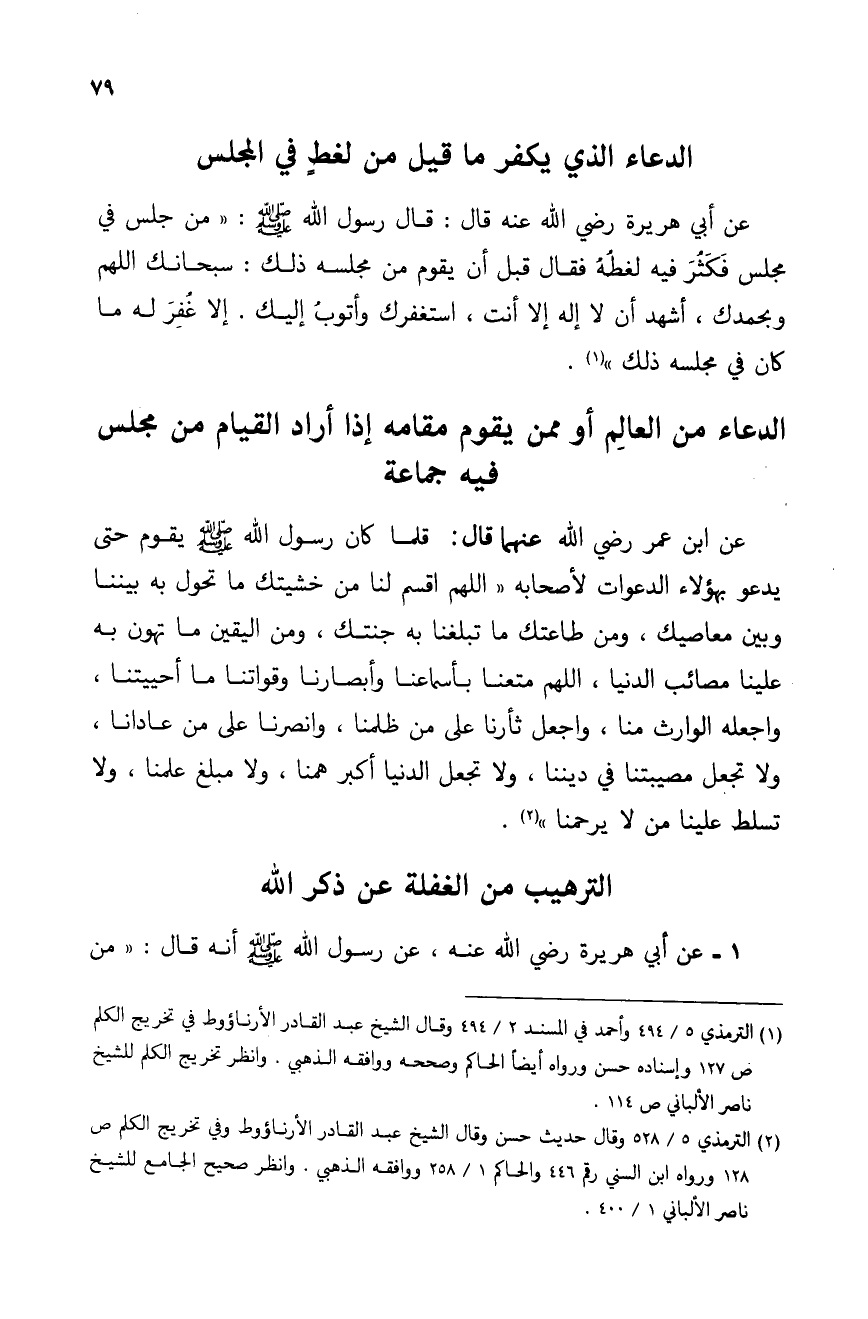 ٧٩
الدعاء الذي يكفر ما قيل من لغطٍ في المجلس
عن أبي هريرة رضي الله عنه قال : قال رسول الله ﷺ : « من جلس في
مجلس فَكَثُرَ فيه لغطُهُ فقال قبل أن يقوم من مجلسه ذلك : سبحانك اللهم
وبحمدك ، أشهد أن لا إله إلا أنت ، استغفرك وأتوبُ إليك . إلا غُفِرَ له ما
كان في مجلسه ذلك »(١) .
الدعاء من العالِم أو ممن يقوم مقامه إذا أراد القيام من مجلس
فيه جماعة
عن ابن عمر رضي الله عنهما قال: قلما كان رسول الله ﷺ يقوم حتى
يدعو بهؤلاء الدعوات لأصحابه « اللهم اقسم لنا من خشيتك ما تحول به بيننا
وبين معاصيك ، ومن طاعتك ما تبلغنا به جنتك ، ومن اليقين ما تهون به
علينا مصائب الدنيا ، اللهم متعنا بأسماعنا وأبصارنا وقواتنا ما أحييتنا ،
واجعله الوارث منا ، واجعل ثأرنا على من ظلمنا ، وانصرنا على من عادانا ،
ولا تجعل مصيبتنا في ديننا ، ولا تجعل الدنيا أكبر همنا ، ولا مبلغ علمنا ، ولا
تسلط علينا من لا يرحمنا »(٢) .
الترهيب من الغفلة عن ذكر الله
١ - عن أبي هريرة رضي الله عنه ، عن رسول الله ﷺ أنه قال : « من
(١) الترمذي ٥ / ٤٩٤ وأحمد في المسند ٢ / ٤٩٤ وقال الشيخ عبد القادر الأرناؤوط في تخريج الكلم
ص ١٢٧ وإسناده حسن ورواه أيضاً الحاكم وصححه ووافقه الذهبي . وانظر تخريج الكلم للشيخ
ناصر الألباني ص ١١٤ .
(٢) الترمذي ٥ / ٥٢٨ وقال حديث حسن وقال الشيخ عبد القادر الأرناؤوط وفي تخريج الكلم ص
١٢٨ ورواه ابن السني رقم ٤٤٦ والحاكم ١ / ٢٥٨ ووافقه الذهبي . وانظر صحيح الجامع للشيخ
ناصر الألباني ١ / ٤٠٠ .